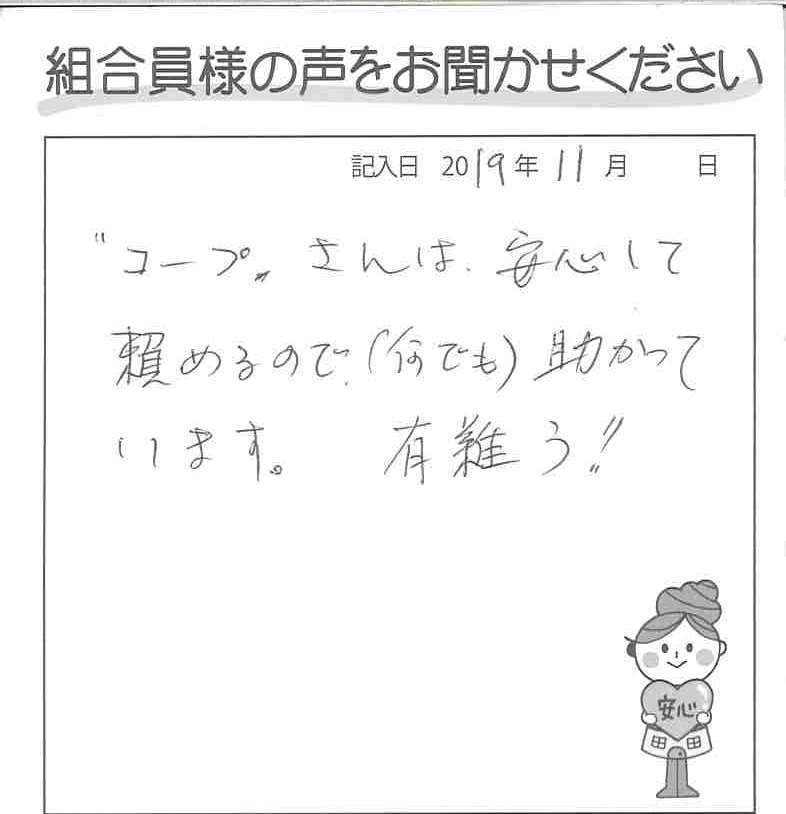 組合員様の声をお聞かせください
記入日 2019年 11月 日
"コープ〟さんは、安心して
頼めるので、(何でも)助かって
います。 有難う!!
安心